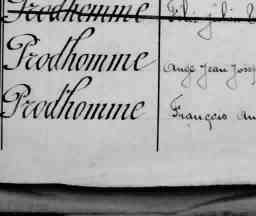 Prodhomme
Prodhomme Ange Jean Josep
Prodhomme François